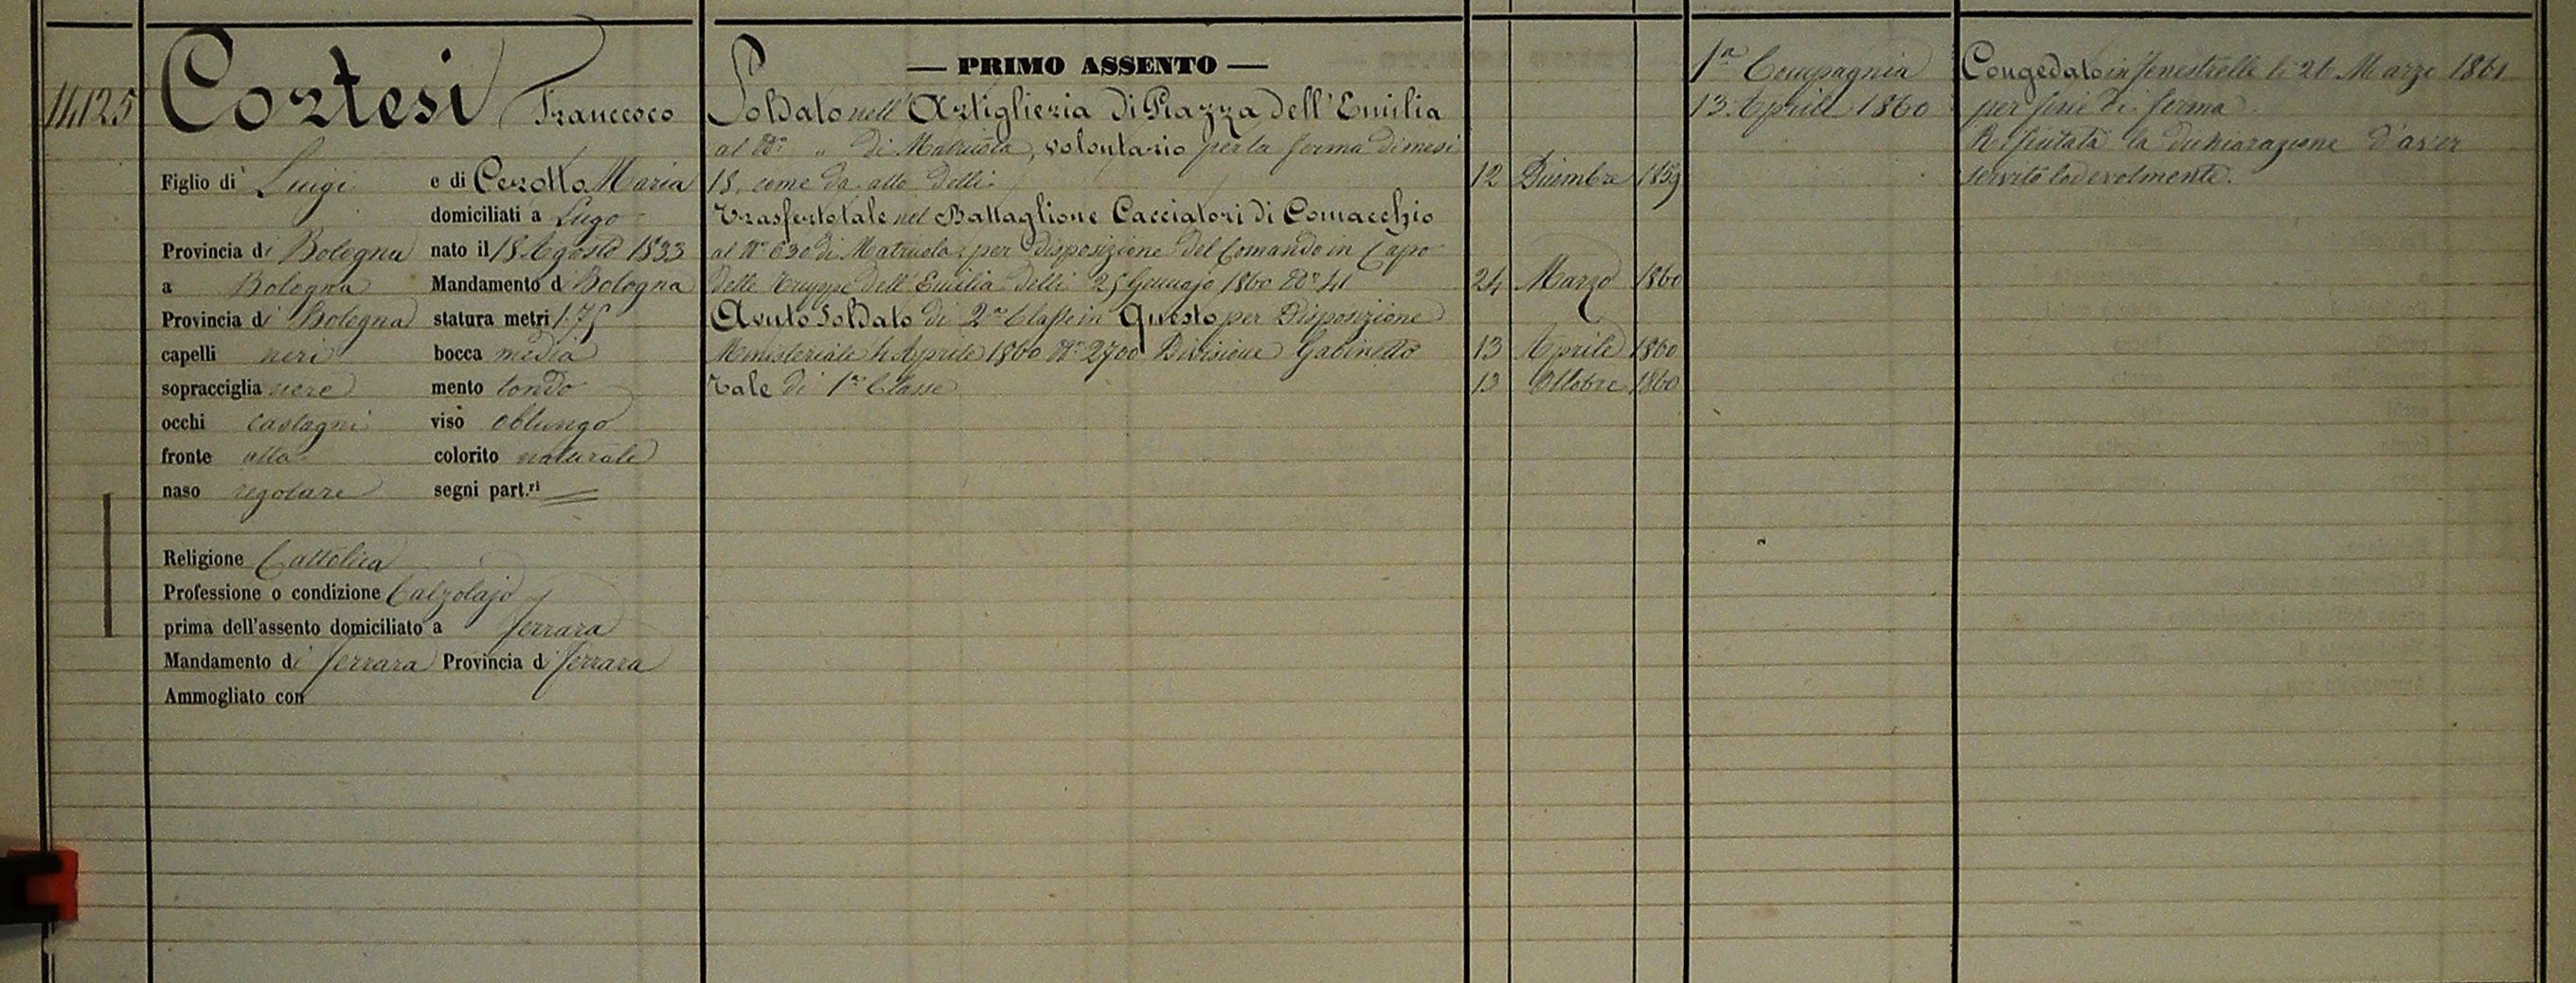 14125
Cortesi Francesco
Figlio di Luigi e di Cerotto Maria
domiciliati a Lugo
Provincia di Bologna nato il 18 Agosto 1833
a Bologna Mandamento d Bologna
Provincia di Bologna statura metri 1.75
capelli neri bocca media
sopracciglia nere mento tondo
occhi castagni viso oblungo
fronte alta colorito naturale
naso regolare segni part.ri
Religione Cattolica
Professione o condizione Calzolajo
prima dell'assento domiciliato a Ferrara
Mandamento di Ferrara Provincia di Ferrara
Ammogliato con
— PRIMO ASSENTO —
Soldato nell' Artiglieria di Piazza dell'Emilia
al N.° " di Matricola, volontario per la ferma di mesi
18, come da atto delli 12 Dicembre 1859
Trasferto tale nel Battaglione Cacciatori di Comacchio
al N.° 630 di Matricola; per disposizione del Comando in Capo
delle Truppe dell'Emilia delli 25 Gennajo 1860 N.° 41 24 Marzo 1860
Avuto Soldato di 2.a Classe in Questo per Disposizione
Ministeriale 4 Aprile 1860 N.° 2700 Divisione Gabinetto 13 Aprile 1860
Tale di 1.a Classe 13 Ottobre 1860
1.a Compagnia
13 Aprile 1860
Congedato in Fenestrelle li 26 Marzo 1861
per fine di ferma.
Rifiutata la dichiarazione d'aver
servito lodevolmente.